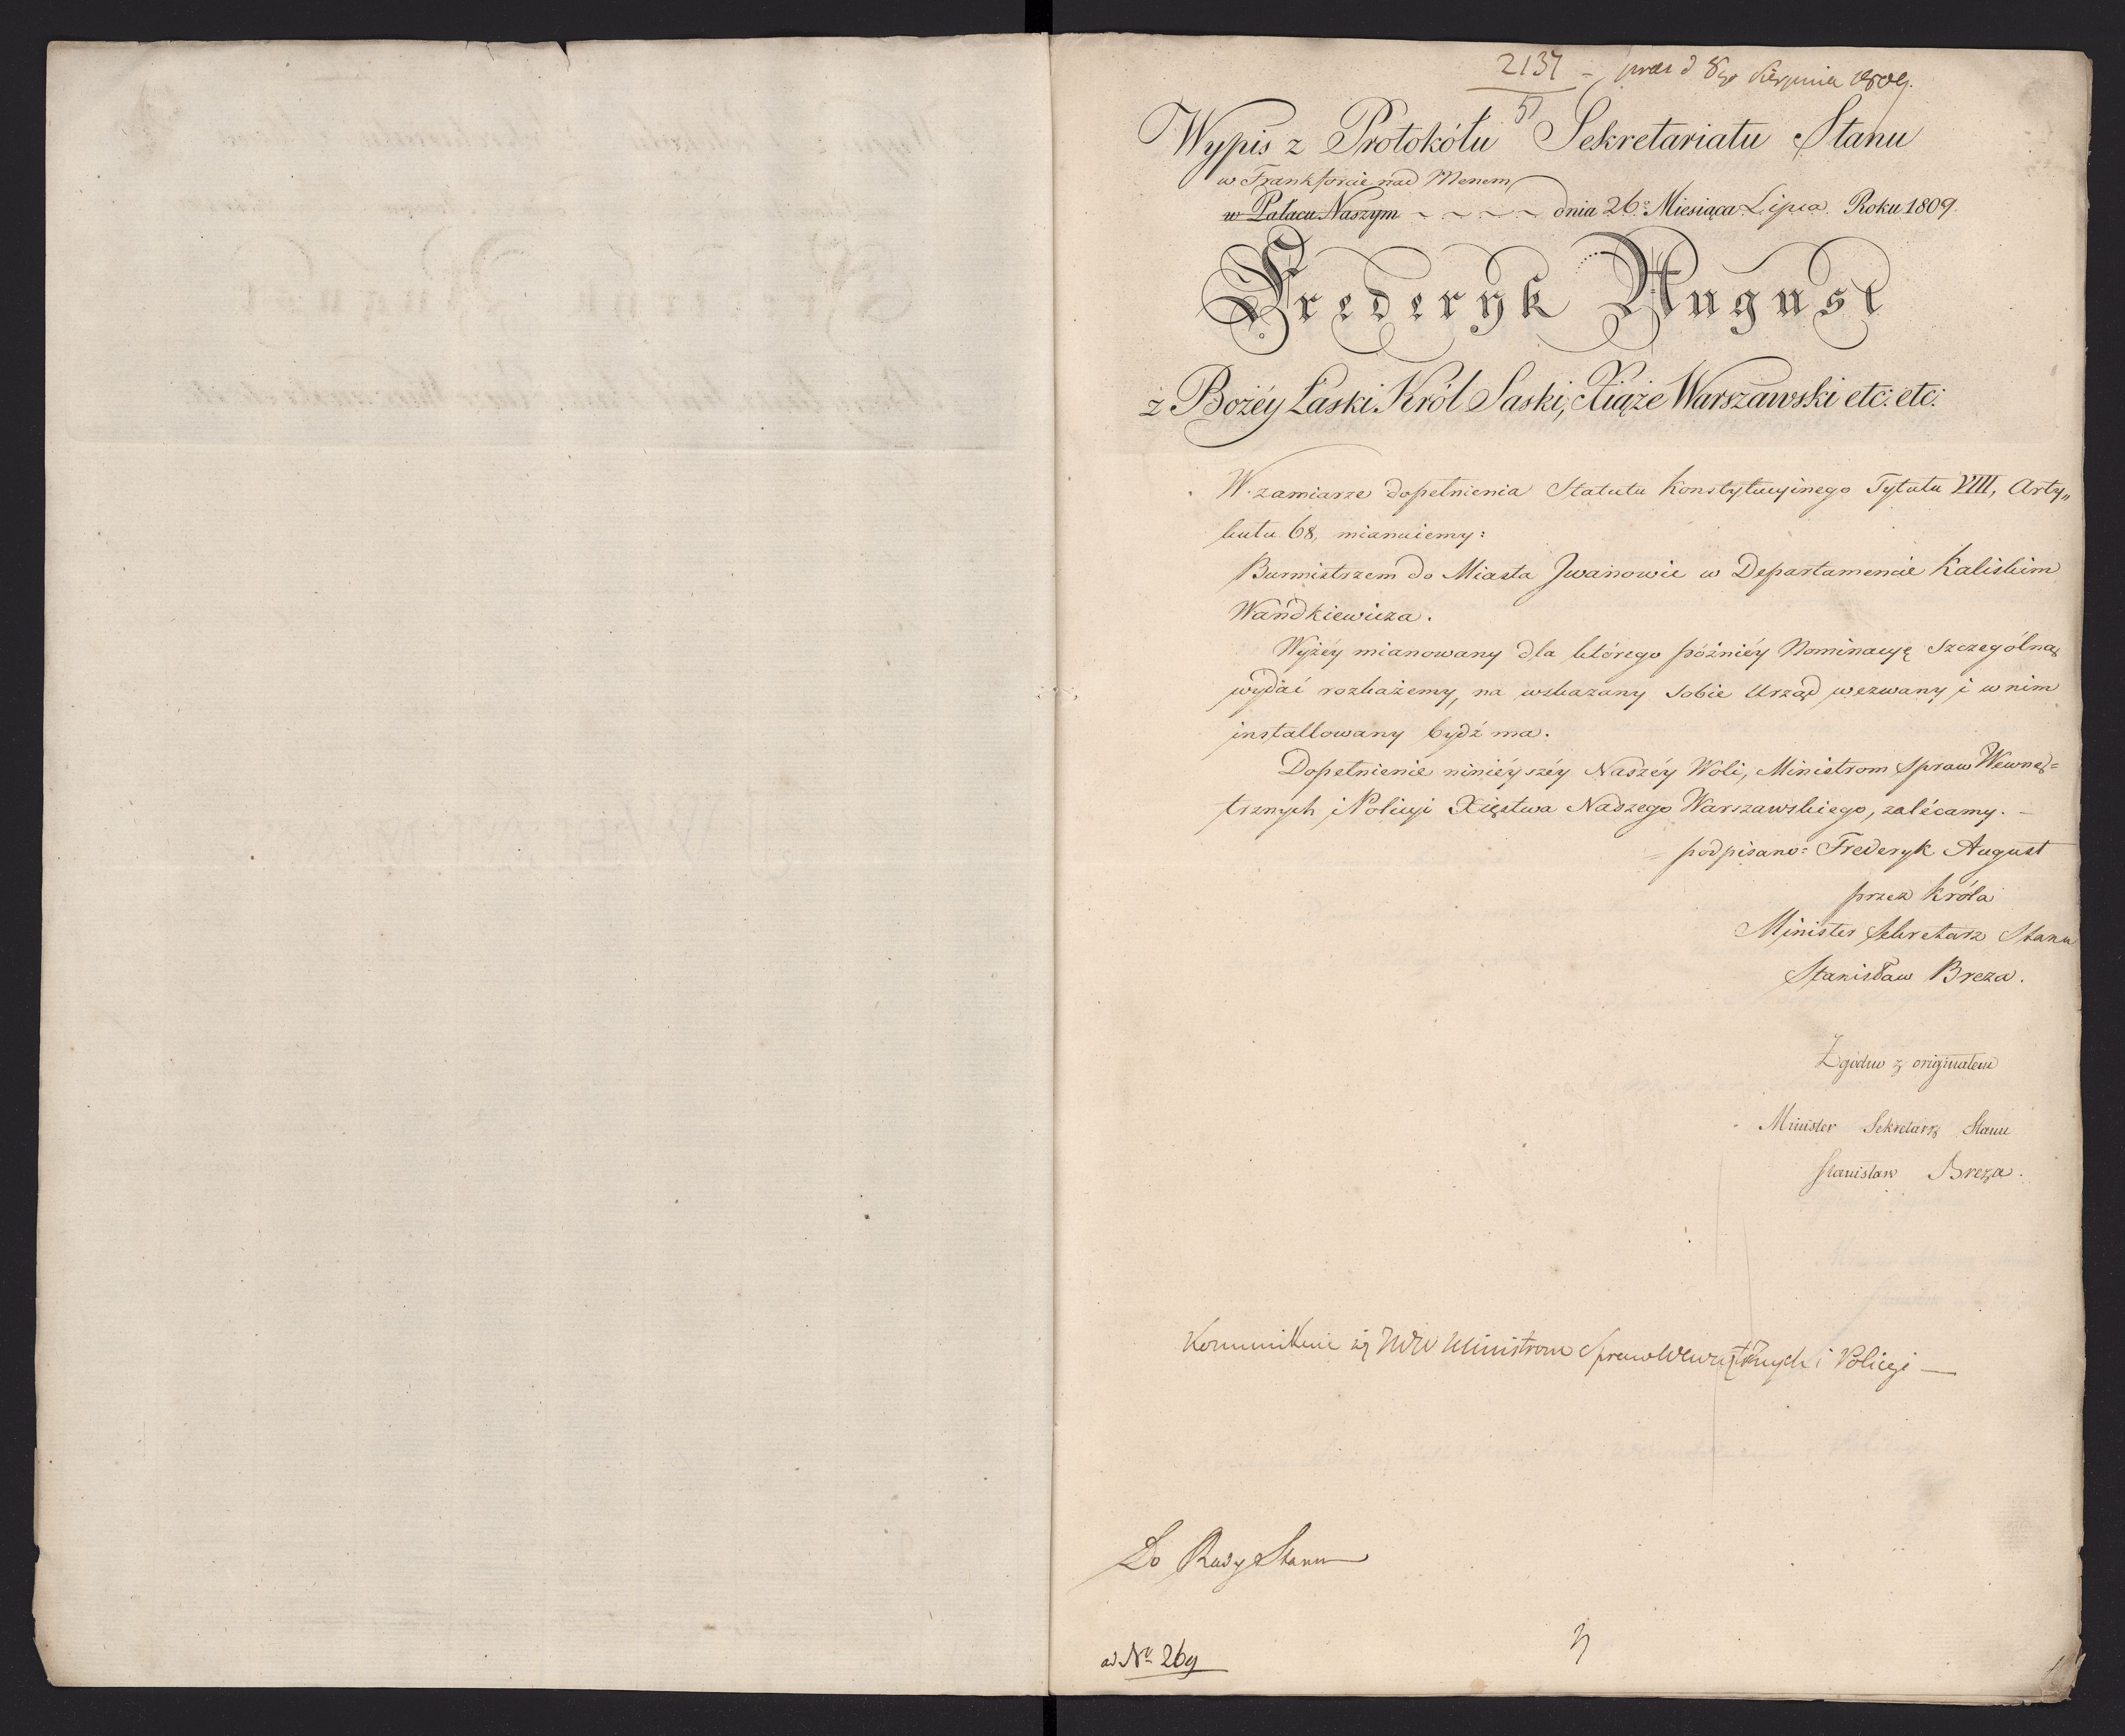 2137 – pras d 8go Sierpnia 1809.
5
Wypis z Protokółu Sekretariatu Stanu
w Frankforcie nad Menem
w Pałacu Naszym ~ ~ ~ ~ dnia 26o Miesiąca Lipca Roku 1809.
Frederyk August
z Bożéy Łaski Król Saski, Xiąże Warszawski etc: etc:
W zamiarze dopełnienia Statutu Konstytucyinego Tytułu VIII, Arty„
kułu 68, mianuiemy:
Burmistrzem do Miasta Iwanowic w Departamencie Kaliskim
Wańdkiewicza.
Wyżéy mianowany dla którego późniéy Nominacyę szczególną
wydać rozkażemy, na wskazany sobie Urząd wezwany i w nim
installowany bydź ma.
Dopełnienie niniéyszéy Naszéy Woli, Ministrom Spraw Wewnę=
trznych i Policyi Xięstwa Naszego Warszawskiego, zalécamy. –
= podpisano: Frederyk August
przez Króla
Minister Sekretarz Stanu
Stanisław Breza.
Zgodno z originałem
Minister Sekretarz Stanu
Stanisław Breza.
Kommunikuie się JWW Ministrom Spraw Wewnętrznych i Policyi —
Do Rady Stanu
ad No 269